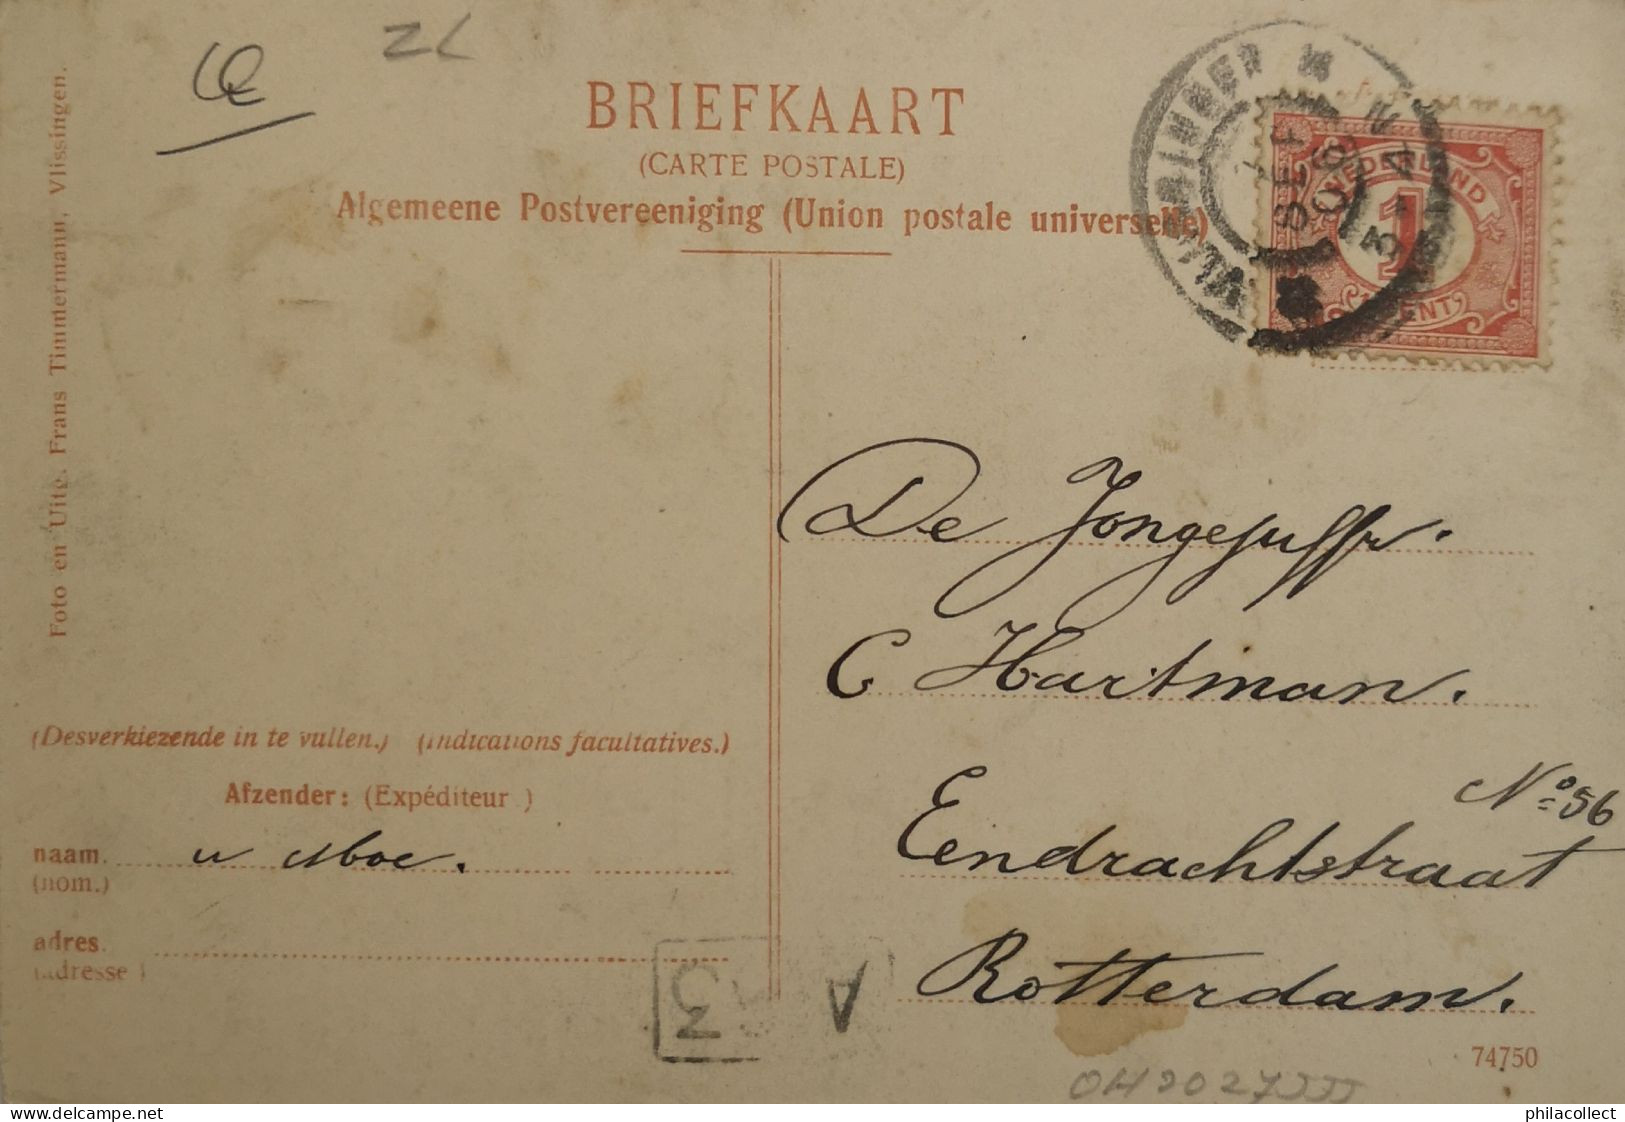 ZL
BRIEFKAART
(CARTE POSTALE)
Algemeene Postvereeniging (Union postale universelle)
NEDERLAND
1
CENT
VLISSINGEN
SEP
06
3-4N
Foto en Uitg. Frans Timmermann, Vlissingen.
De Jongejuffr.
C Hartman.
No 56
Eendrachtstraat
Rotterdam.
(Desverkiezende in te vullen.) (Indications facultatives.)
Afzender: (Expéditeur)
naam. u Moe.
(nom.)
adres.
(adresse)
A
3
74750
OH2027JJJ
philacollect